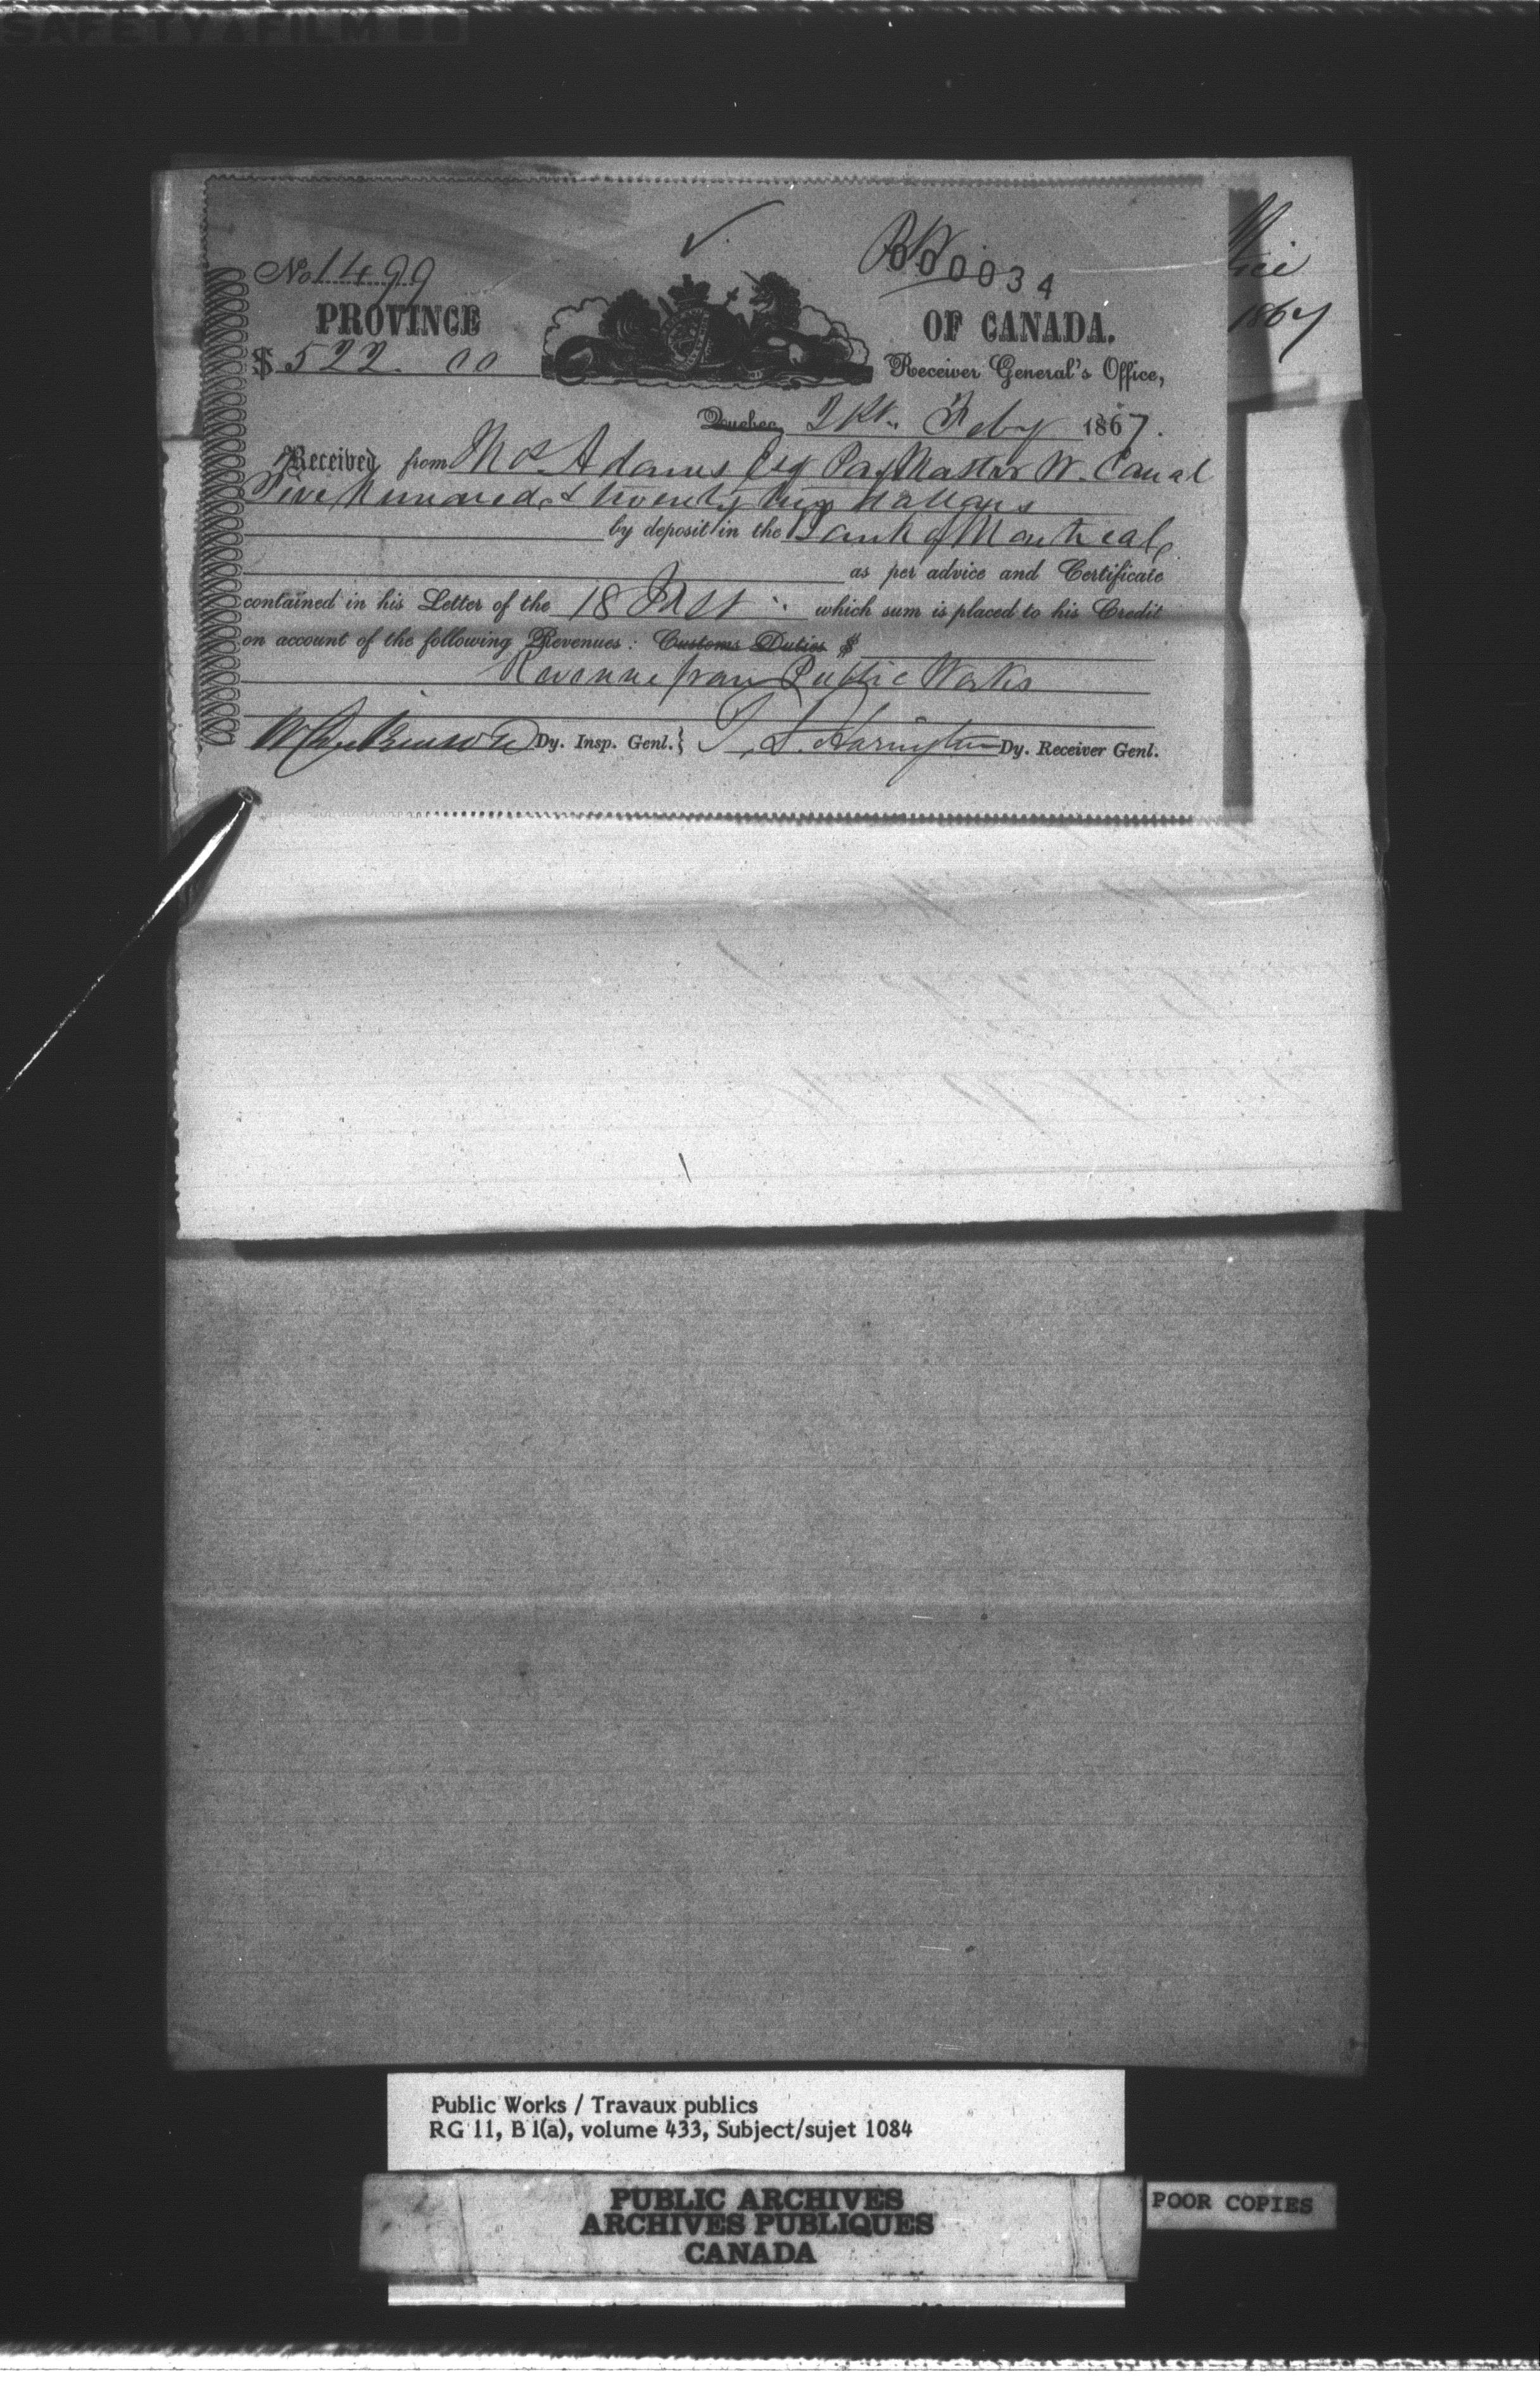 SAFETY FILM
No 1499
PW
000034
PROVINCE OF CANADA.
$ 522.00
Receiver General's Office,
Quebec, 21st. Feby 1867.
Received from M S Adams Esq PayMaster W. Canal
Five hundred & twenty two dollars
by deposit in the Bank of Montreal
as per advice and Certificate
contained in his Letter of the 18 Inst which sum is placed to his Credit
on account of the following Revenues: Customs Duties $
Revenue from Public Works
Dy. Insp. Genl. } T. D. Harington Dy. Receiver Genl.
1867
Public Works / Travaux publics
RG 11, B 1(a), volume 433, Subject/sujet 1084
PUBLIC ARCHIVES
ARCHIVES PUBLIQUES
CANADA
POOR COPIES